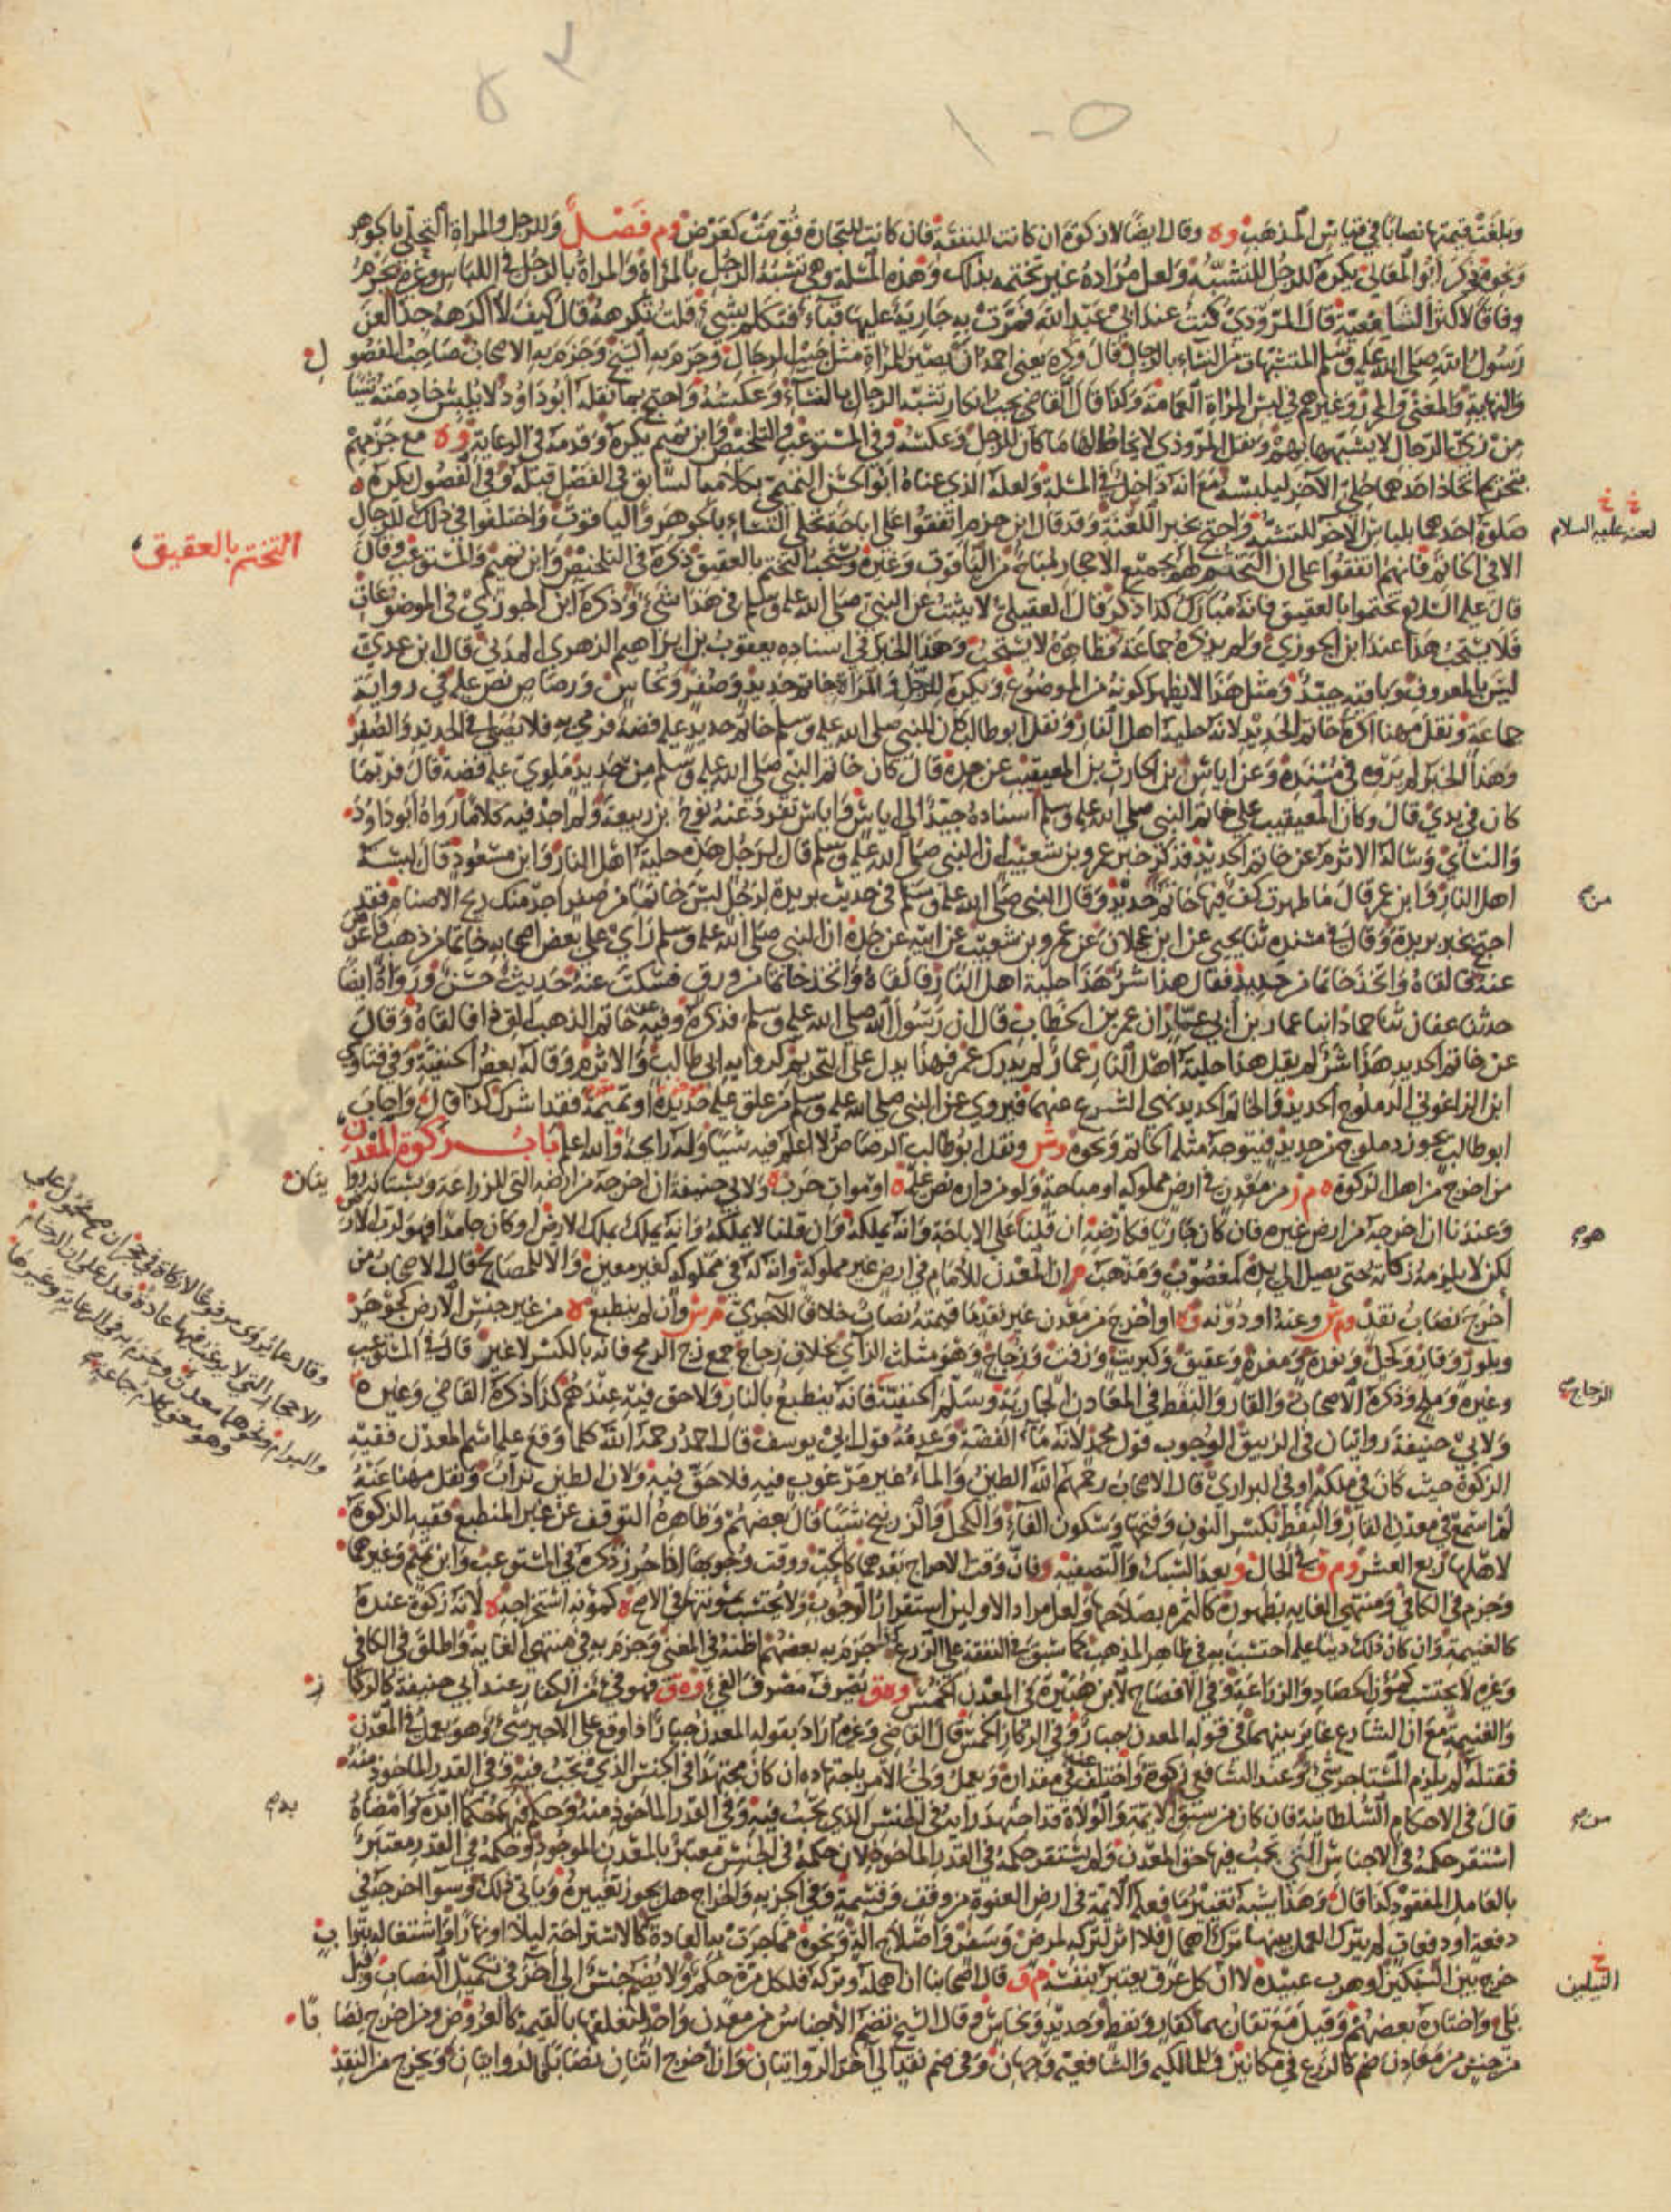 وبلغت قيمتها نصابا في قياس المذهب وه وقال ايضا لا زكوة ان كانت للنفقة فان كانت للتجارة قومت كعرض وم فصل وللرجل والمراة التحلي بالجوهر
ونحوه ذكر ابو المعالي يكره للرجل للتشبه ولعل مراده غير تختمه بذلك وهذه المسئلة وهي تشبه الرجل بالمراة والمراة بالرجل في اللباس وغيره يحرم
وفاقا لاكثر الشافعية قال المروذي كنت عند ابي عبد الله فمرت به جارية عليها قباء فتكلم بشيء قلت تكرهه قال كيف لا اكرهه جدا لعن
رسول الله صلى الله عليه وسلم المتشبهات من النساء بالرجال قال وكره يعني احمد ان يصير للمراة مثل جيب الرجال وجزم به الشيخ وجزم به الاصحاب صاحب الفصو ل
والنهاية والمغني والمحرر وغيرهم في لبس المراة العمامة وكذا قال القاضي يجب انكار تشبه الرجال بالنساء وعكسه واحتج بما نقله ابو داود لا يلبس خادمته شيا
من زي الرجال لا يشبهها بهم ونقل المروذي لا يخاط لها ما كان للرجل وعكسه وفي المستوعب والتلخيص وابن تميم يكره وقدمه في الرعاية وه مع جزمهم
بتحريم اتخاذ احدهما حلي الاخر ليلبسه مع انه داخل في المسئلة ولعله الذي عناه ابو الحسن التميمي بكلامه السابق في الفصل قبله وفي الفصول يكره
صلوة احدهما بلباس الاخر للتشبه واحتج بخبر اللعنة وقد قال ابن حزم اتفقوا على اباحة تحلي النساء بالجوهر والياقوت واختلفوا في ذلك للرجال
لعنه عليه السلام
التختم بالعقيق
الا في الخاتم فانهم اتفقوا على ان التختم لهم بجميع الاحجار مباح من الياقوت وغيره ويستحب التختم بالعقيق ذكره في التلخيص وابن تميم والمستوعب وقال
قال عليه السلام تختموا بالعقيق فانه مبارك كذا ذكر قال العقيلي لا يثبت عن النبي صلى الله عليه وسلم في هذا شيء وذكره ابن الجوزي في الموضوعات
فلا يستحب هذا عند ابن الجوزي ولم يذكره جماعة فظاهره لا يستحب وهذا الخبر في اسناده يعقوب بن ابراهيم الزهري المدني قال ابن عدي
ليس بالمعروف وباقيه جيد ومثل هذا لا يظهر كونه من الموضوع ويكره للرجل والمراة خاتم حديد وصفر ونحاس ورصاص نص عليه في رواية
جماعة ونقل مهنا اكره خاتم الحديد لانه حلية اهل النار ونقل ابو طالب كان للنبي صلى الله عليه وسلم خاتم حديد عليه فضة فرمى به فلا يصلى في الحديد والصفر
وهذا الخبر لم يروه في مسنده وعن اياس بن الحارث بن المعيقيب عن جده قال كان خاتم النبي صلى الله عليه وسلم من حديد ملوي عليه فضة قال فربما
كان في يدي قال وكان المعيقيب على خاتم النبي صلى الله عليه وسلم اسناده جيد الى اياس واياس تفرد عنه نوح بن ربيعة ولم اجد فيه كلاما رواه ابو داود
والنسائي وساله الاثرم عن خاتم الحديد فذكر خبر عمرو بن شعيب ان النبي صلى الله عليه وسلم قال لرجل هذه حلية اهل النار وابن مسعود قال لبسة
اهل النار وابن عمر قال ما طهرت كف فيها خاتم حديد وقال النبي صلى الله عليه وسلم في حديث بريدة لرجل لبس خاتما من صفر اجد منك ريح الاصنام فقد
احتج بخبر بريدة وقال في مسنده ثنا يحيى عن ابن عجلان عن عمرو بن شعيب عن ابيه عن جده ان النبي صلى الله عليه وسلم راى على بعض اصحابه خاتما من ذهب فاعرض
عنه فالقاه واتخذ خاتما من حديد فقال هذا شر هذا حلية اهل النار فالقاه واتخذ خاتما من ورق فسكت عنه حديث حسن ورواه ايضا
حدثنا عفان ثنا حماد انبا عمار بن ابي عمار ان عمر بن الخطاب قال ان رسول الله صلى الله عليه وسلم فذكره وفيه خاتم الذهب الق ذا فالقاه وقال
عن خاتم الحديد هذا شر لم يقل هذا حلية اهل النار عمار لم يدرك عمر فهذا يدل على التحريم كرواية ابي طالب والاثرم وقاله بعض الحنفية وفي فتاوي
ابن الزاغوني الدملوج الحديد والخاتم الحديد نهى الشرع عنهما فيروى عن النبي صلى الله عليه وسلم من علق عليه حديدة او تميمة فقد اشرك كذا قال واجاب
ابو طالب يجوز دملوج من حديد فيتوجه مثله الخاتم ونحوه وش ونقل ابو طالب الرصاص لا اعلم فيه شيا وله رايحة والله اعلم باب زكوة المعدن
من اخرج من اهل الزكوة ه م ز من معدن في ارض مملوكة او مباحة ولو من داره نص عليه ه او موات خرب ه ولابي حنيفة ان اخرجه من ارضه التي للزراعة وبستانه روا يتان
وعندنا ان اخرجه من ارض غيره فان كان جاريا فكارضه ان قلنا على الاباحة وانه يملكه وان قلنا لا يملكه وانه يملك بملك الارض او كان جامدا فهو لرب الارض
لكن لا يلزمه زكاته حتى يصل الى يده كمغصوب ومذهب م ان المعدن للامام في ارض غير مملوكة وانه له في مملوكة لغير معين والا للمصالح قال الاصحاب من
اخرج نصاب نقد وم ش وعنه او دونه وه او اخرج من معدن غير نقد ما قيمته نصاب خلافا للاجري م ر ش وان لم ينطبع ه من غير جنس الارض كجوهر
وبلور وقار وكحل ونورة ومغرة وعقيق وكبريت وزفت وزجاج وهو مثلث الزاي بخلاف زجاج جمع زج الرمح فانه بالكسر لا غير قال في المستوعب
وغيره وملح وذكره الاصحاب والقار والنفط في المعادن الجارية وسلم الحنفية فانه ينطبع بالنار ولا حق فيه عندهم كذا ذكره القاضي وغيره
ولابي حنيفة روايتان في الزيبق الوجوب قول محمد لانه ماء الفضة وعدمه قول ابي يوسف قال احمد رحمه الله كلما وقع عليه اسم المعدن ففيه
الزكوة حيث كان في ملكه او في البراري قال الاصحاب رحمهم الله الطين والماء غير مرغوب فيه فلا حق فيه ولان الطين تراب ونقل مهنا عنه
لم اسمع في معدن القار والنفط بكسر النون وفتحها وسكون الفاء والكحل والزرنيخ شيا قال بعضهم وظاهره التوقف عن غير المنطبع ففيه الزكوة
لاهلها ربع العشر وم ق في الحال وبعد السبك والتصفية وفان وقت الاخراج بعدهما كالحب ووقت وجوبها اذا احرز ذكره في المستوعب وابن تميم وغيرهما
وجزم في الكافي ومنتهى الغاية بظهوره كالثمرة بصلاحها ولعل مراد الاولين استقرار الوجوب ولا يحتسب بمؤنتها في الاصح ه كمؤنة استخراجه ه لانه زكوة عنده
كالغنيمة وان كان ذلك دينا عليه احتسب به في ظاهر المذهب كما سبق في النفقة على الزرع كذا جزم به بعضهم اظنه في المغني وجزم به في منتهى الغاية واطلق في الكافي
وغيره لا يحتسب كمؤن الحصاد والزراعة وفي الافصاح لابن هبيرة في المعدن الخمس وه ق يصرف مصرف الفيء وه ق فهو فيء من الكفار عند ابي حنيفة كالركا ز
والغنيمة مع ان الشارع غاير بينهما في قوله المعدن جبار وفي الركاز الخمس قال القاضي وغيره اراد بقوله المعدن جبار اذا وقع على الاجير شيء وهو يعمل في المعدن
فقتله لم يلزم المستاجر شيء وعند الشافعي زكوة واختلف عنه في مقداره ويعمل ولي الامر باجتهاده ان كان مجتهدا في الجنس الذي تجب فيه وفي القدر الماخوذ منه
قال في الاحكام السلطانية فان كان من سبق الايمة والولاة قد اجتهد رايه في الجنس الذي يجب فيه وفي القدر الماخوذ منه وحكم فيه حكما ابده وامضاه
استقر حكمه في الاجناس التي تجب فيها حق المعدن ولم يستقر حكمه في القدر الماخوذ لان حكمه في الجنس معتبر بالمعدن الموجود وحكمه في القدر معتبر
بالعامل المفقود كذا قال وهذا يشبه تغيير ما فعله الايمة في ارض العنوة من وقف وقسمة وفي الجزية والخراج هل يجوز تغييره وياتي ذلك وسوا اخرجه في
دفعة او دفعات لم يترك العمل بينهما ترك اهمال فلا اثر لتركه لمرض وسفر واصلاح الة ونحوه مما جرت به العادة كالاستراحة ليلا او نهارا واشتغاله بترا ب
خرج بين النيلين او هرب عبيده لا ان كل عرق يعتبر بنفسه م ق قال اصحابنا ان اهمله وتركه فلكل مرة حكم ولا يضم جنس الى اخر في تكميل النصاب وقيل
بلى واختاره بعضهم وقيل مع تقاربهما كقار ونفط وحديد ونحاس وقال الشيخ تضم الاجناس من معدن واحد لتعلقها بالقيمة كالعروض ومن اخرج نصا با
من جنس من معادن ضم كالزرع في مكانين وللمالكية والشافعية وجهان وفي ضم نقد الى اخر الروايتان وان اخرج اثنان نصابا فالروايتان ويخرج من النقد
من
هو
الزجاج
من
بدم
النيلين
وقال عما يروى مرفوعا لا زكاة في حجر ان صح محمول على
الاحجار التي لا يرغب فيها عادة فدل على ان الرخام
والبرام ونحوها معدن وجزم به في الرعاية وغيرها
وهو معنى كلام جماعة